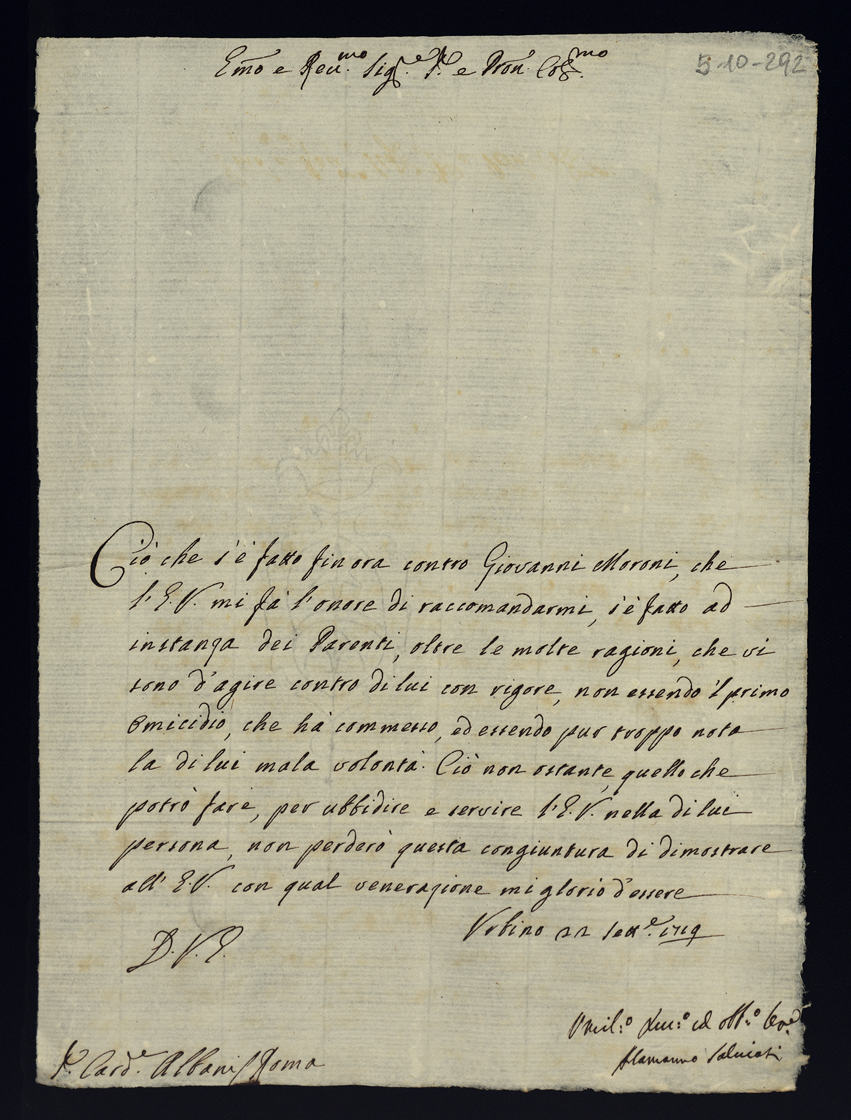 Em̃o e Reu.mo Sig.re P.re e Pron' Col.mo
5-10-292
Ciò che s'è fatto fin ora contro Giovanni Moroni, che
l'E.V. mi fà l'onore di raccomandarmi, s'è fatto ad
instanza dei Parenti, oltre le molte ragioni, che vi
sono d'agire contro di lui con rigore, non essendo 'l primo
Omicidio, che hà commesso, ed essendo pur troppo nota
la di lui mala volontà. Ciò non ostante, quello che
potrò fare, per ubbidire e servire l'E.V. nella di lui
persona, non perderò questa congiuntura di dimostrare
all' E.V. con qual venerazione mi glorio d'essere
Urbino 22 Sett.e 1719
D.V.E.
Umil.o Diu.o ed obb.o
Alamanno Salviati
S.r Card.e Albani / Roma